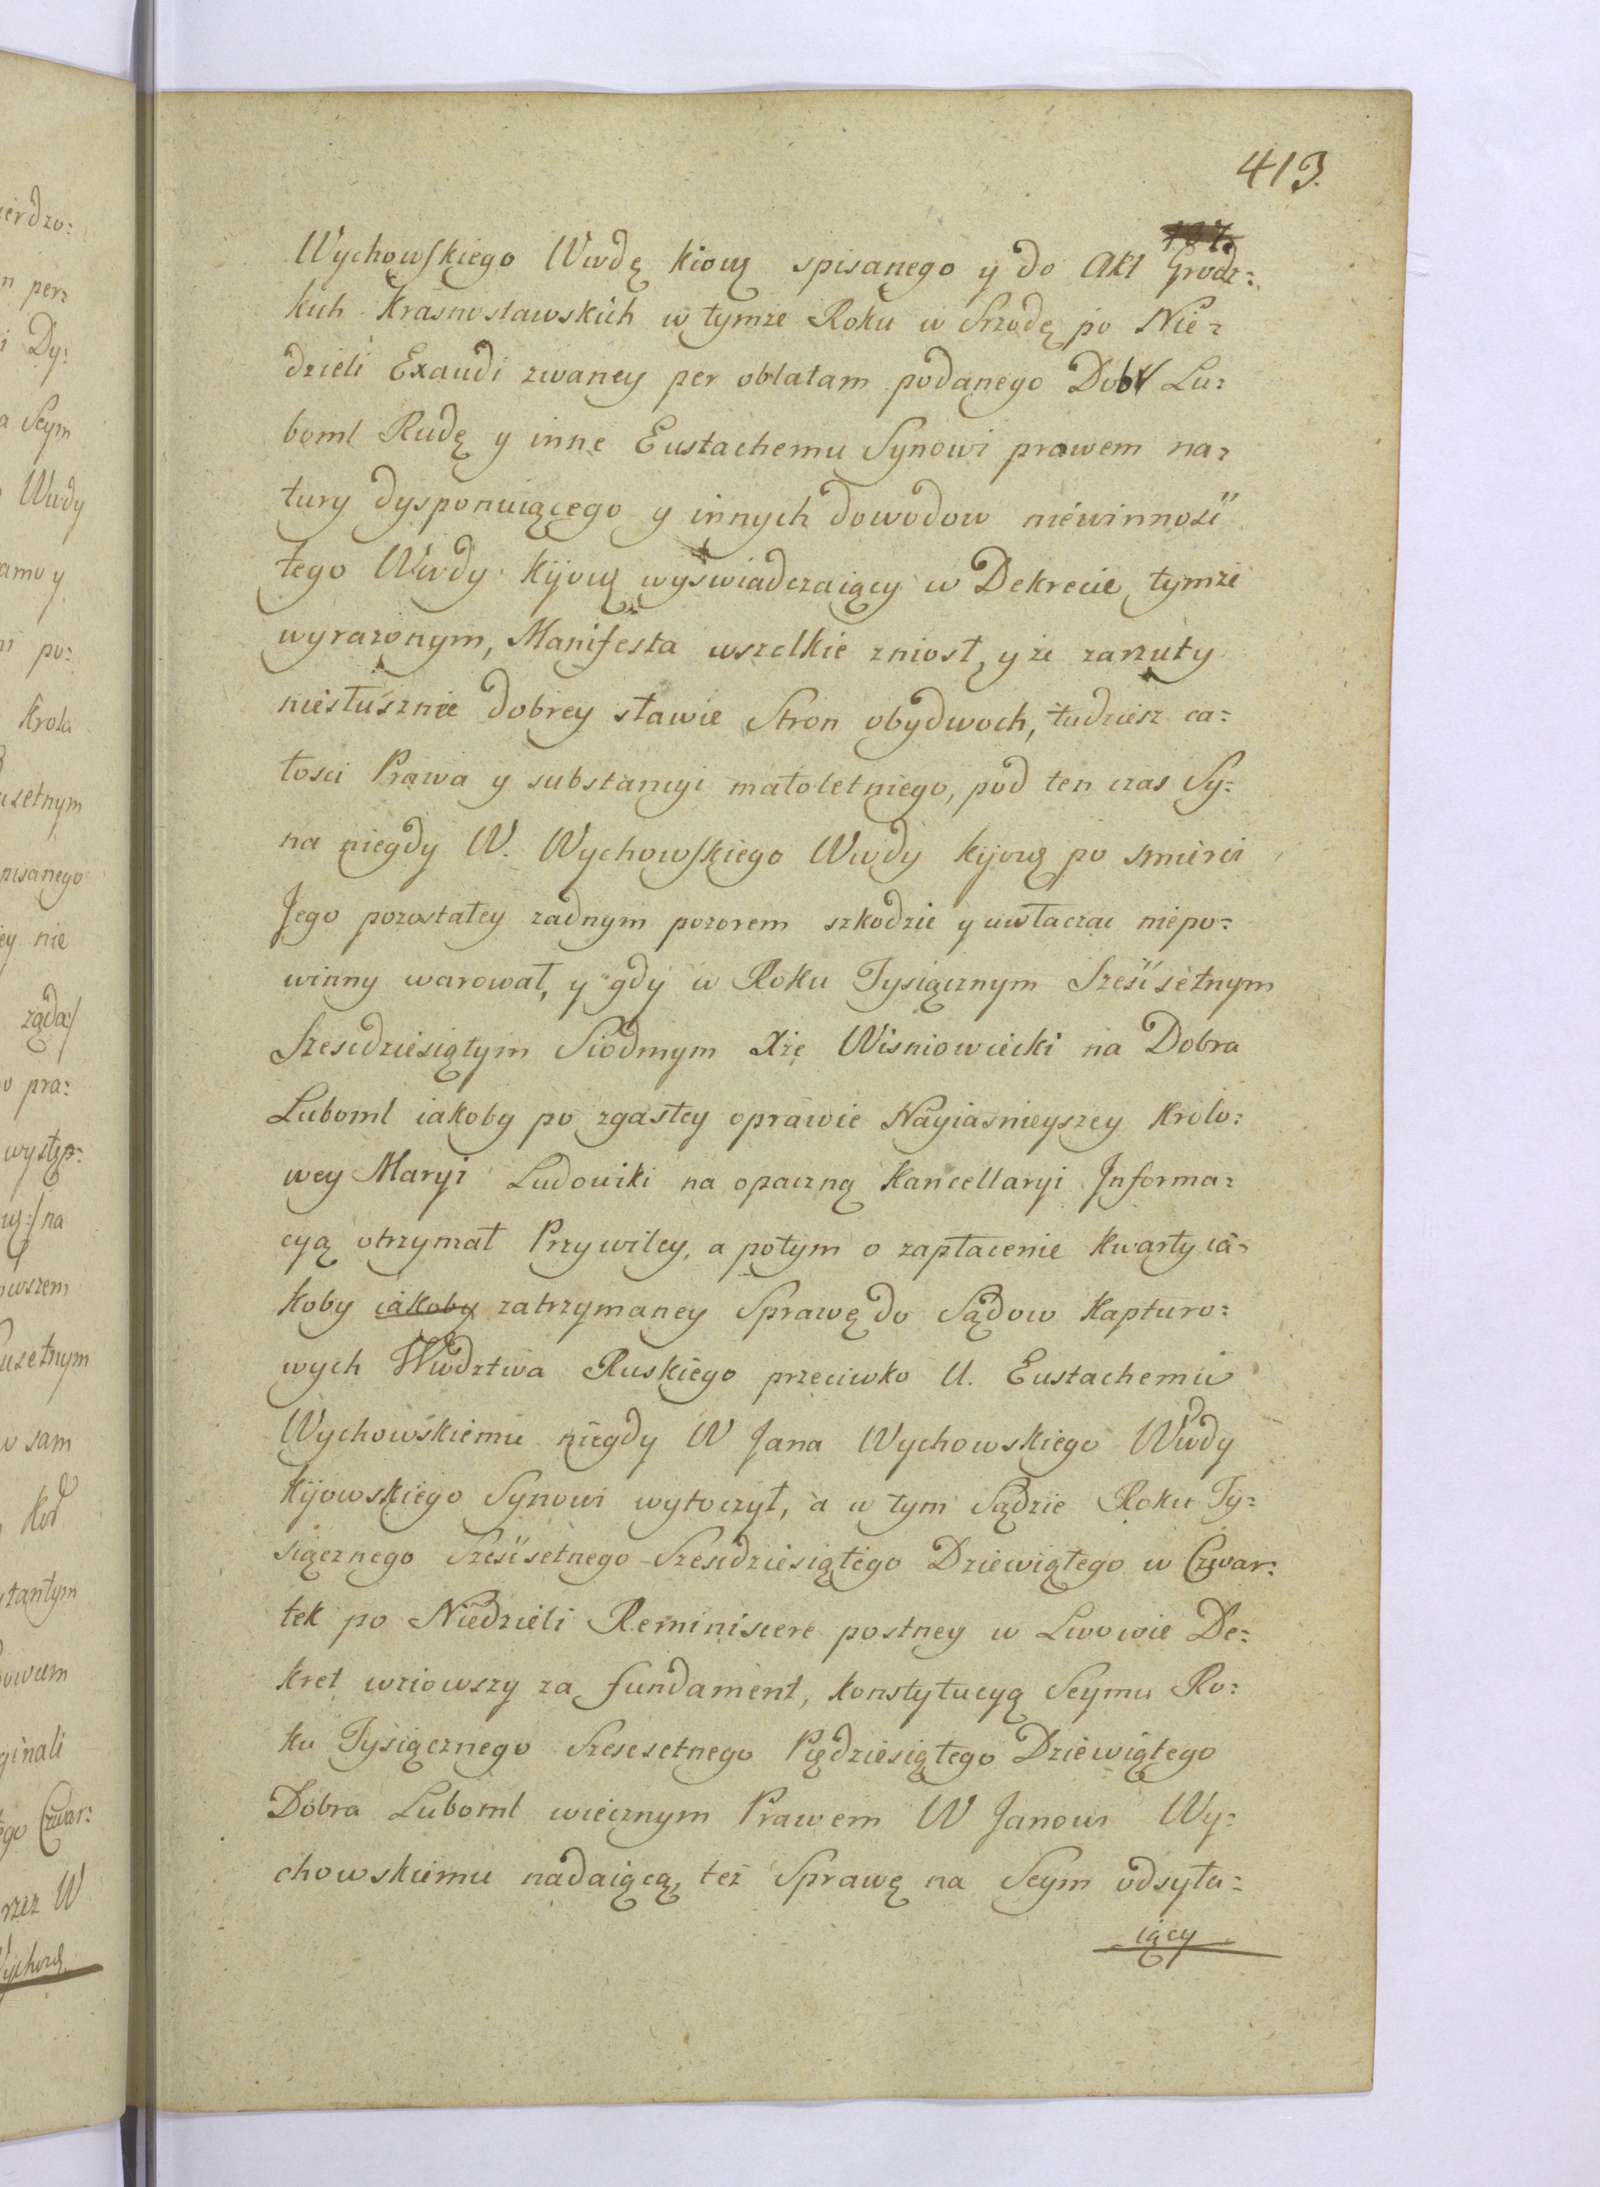 413.
Wychowskiego Wwdę kiową spisanego y do Akt Grodz=
kich Krasnostawskich w tymze Roku w Srzodę po Nie=
dzieli Exaudi zwaney per oblatam podanego Dobr Lu=
boml Rudę y inne Eustachemu Synowi prawem na=
tury dysponuiącego y innych dowodow niewinnosci
tego Wwdy Kijowg wyswiadczaiący w Dekrecie tymze
wyrazonym, Manifesta wszelkie zniosł, y ze zarzuty
niesłusznie dobrey sławie Stron obydwoch, tudziesz ca=
łosci Prawa y substancyi małoletniego, pod ten czas Sy=
na niegdy W. Wychowskiego Wwdy kijowg po smierci
Jego pozostałey zadnym pozorem szkodzie y uwłaczac niepo=
winny warował, y gdy w Roku Tysiącznym Szescsetnym
Szescdziesiątym Siodmym Xżę Wisniowiecki na Dobra
Luboml iakoby po zgasłey oprawie Nayiasnieyszey Krolo=
wey Maryi Ludowiki na opaczną Kancellaryi Informa=
cyą otrzymał Przywiley, a potym o zapłacenie kwarty ia=
koby iakoby zatrzymaney Sprawę do Sądow Kapturo=
wych Wwdztwa Ruskiego przeciwko U. Eustachemu
Wychowskiemu niegdy W Jana Wychowskiego Wwdy
kijowskiego Synowi wytoczył, a w tym Sądzie Roku Ty=
siącznego Szescsetnego Szescdziesiątego Dziewiątego w Czwar=
tek po Niedzieli Reminiscere postney w Lwowie De=
kret wziowszy za fundament, konstytucyą Seymu Ro=
ku Tysiącznego Szescsetnego Piędziesiątego Dziewiątego
Dobra Luboml wiecznym Prawem W Janowi Wy=
chowskiemu nadaiącą, tez Sprawę na Seym odsyła=
iący